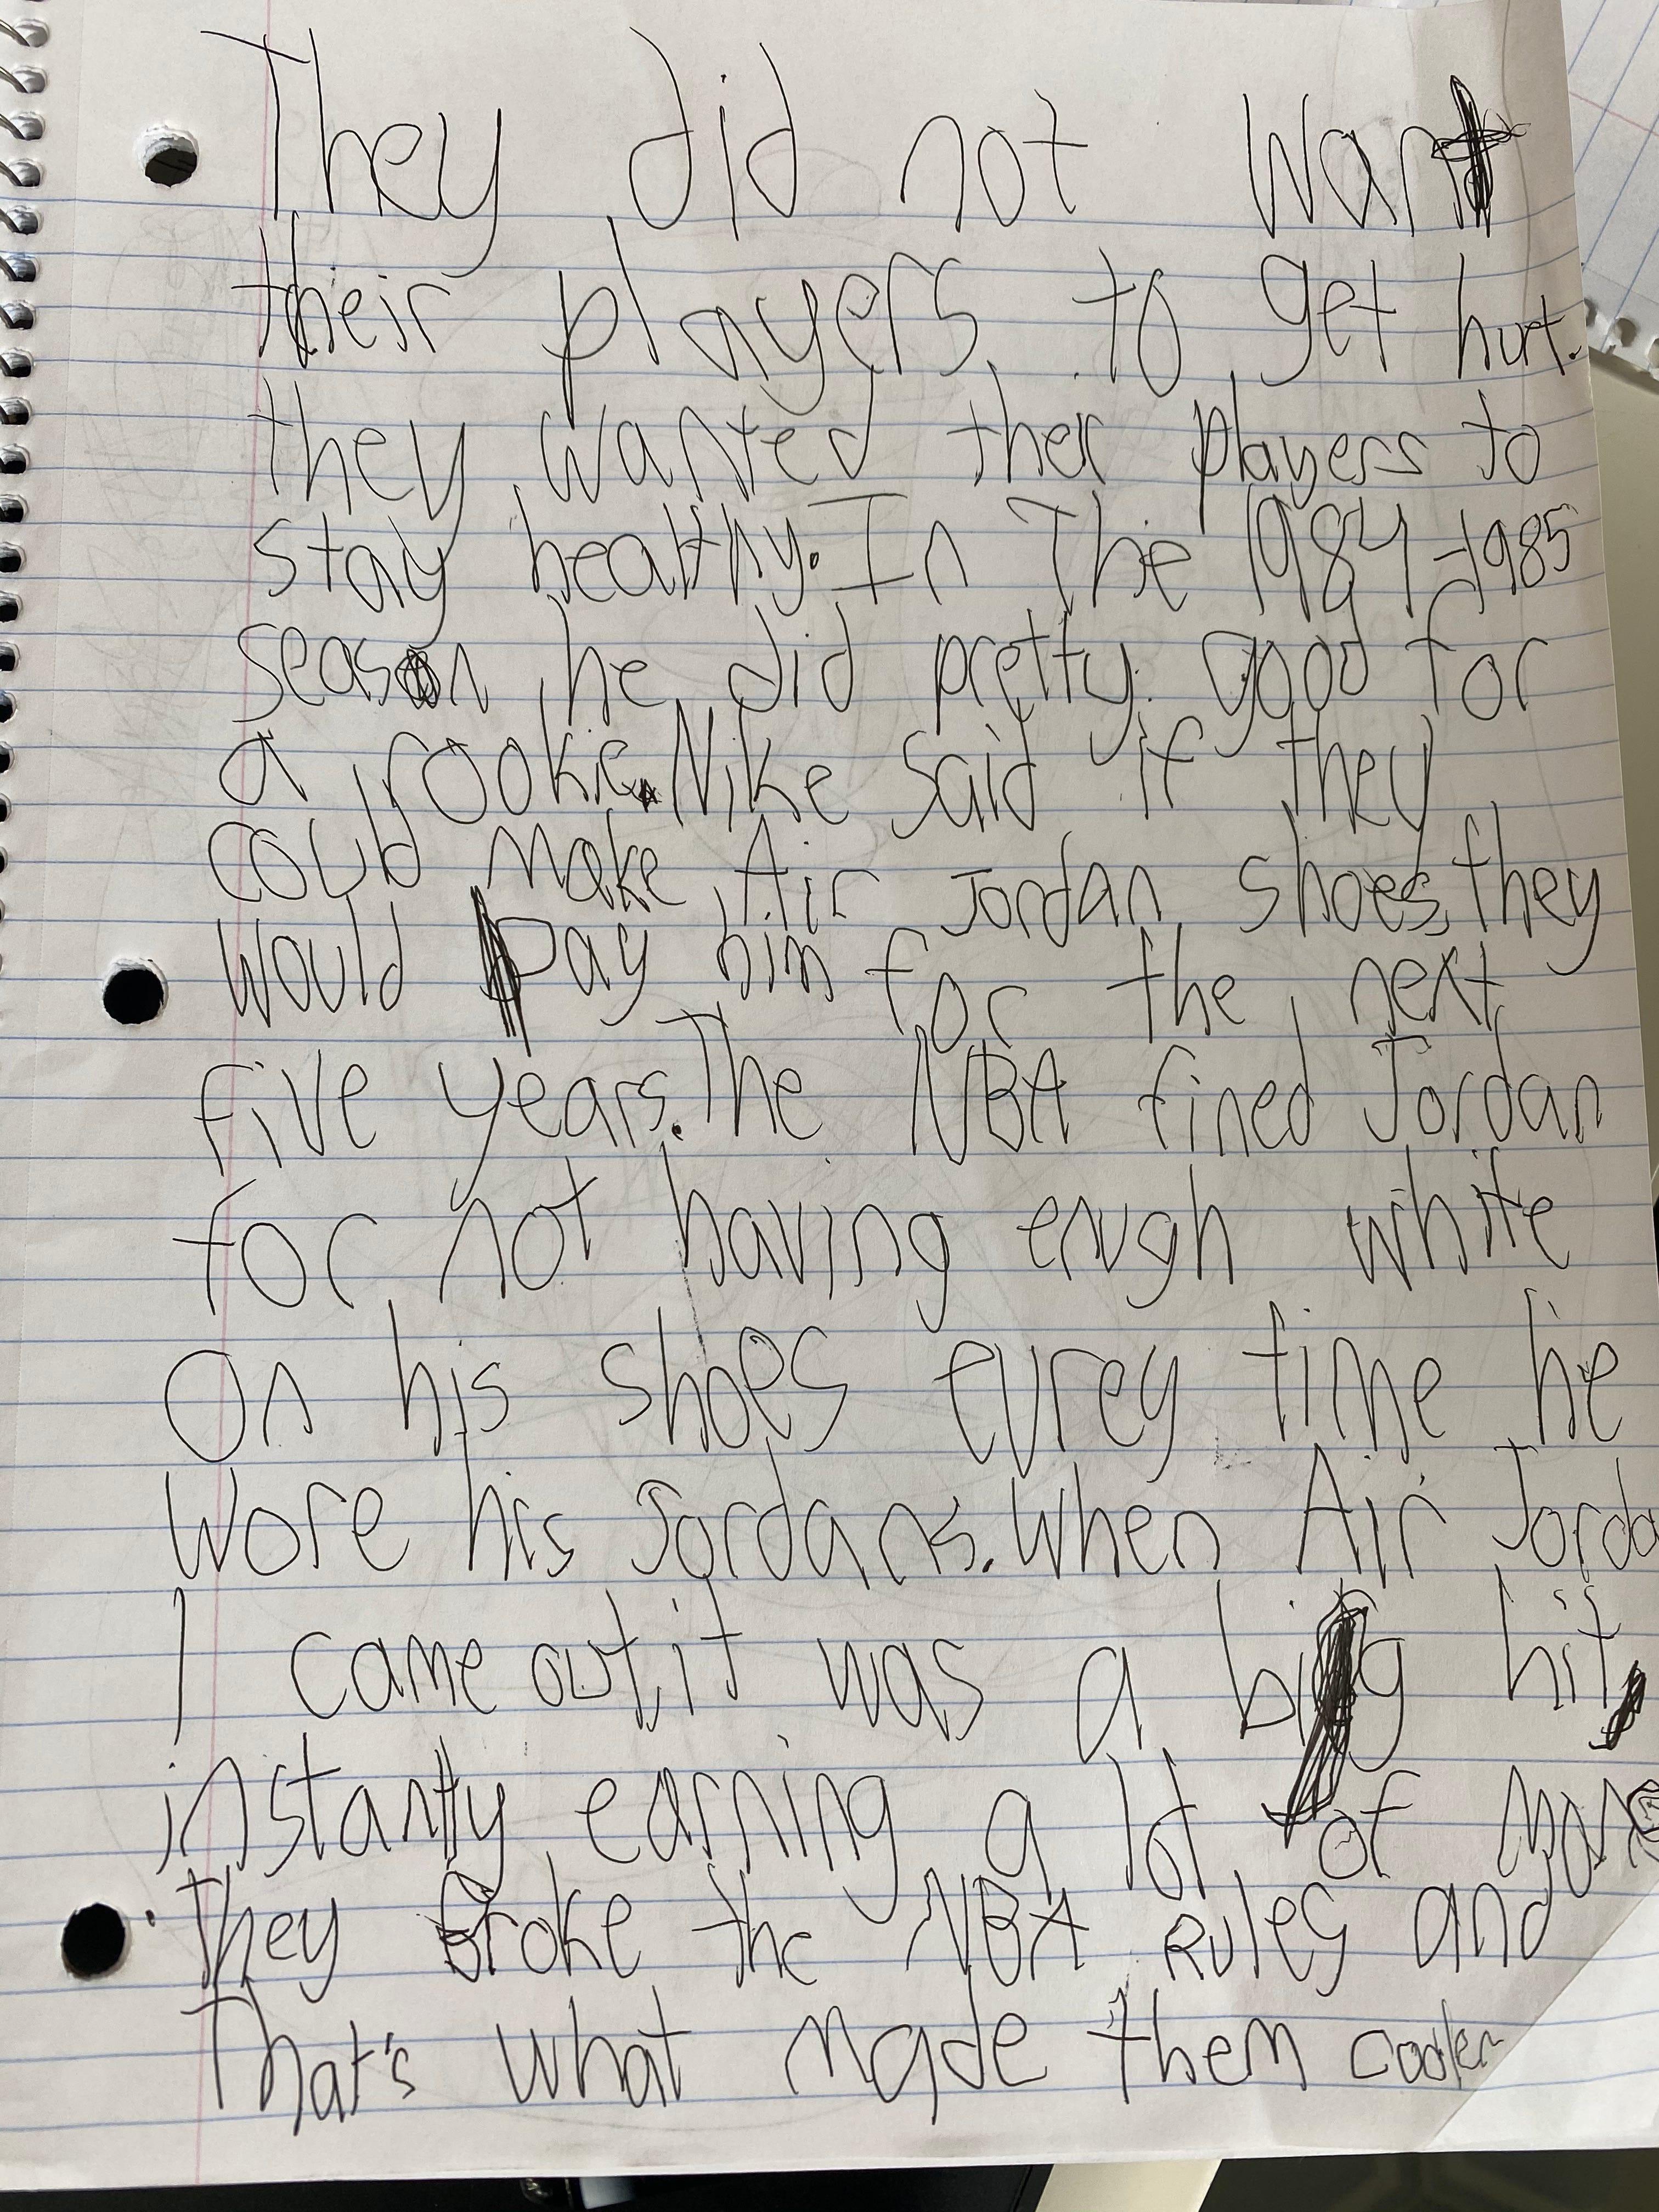 They did not want
their players to get hurt.
they wanted their players to
stay healthy. In The 1984-1985
season he did pretty good for
a rookie. Nike said if they
could make Air Jordan shoes, they
would pay him for the next
five years. The NBA fined Jordan
for not having enugh white
On his shoes evrey time he
wore his Jordans. When Air Jorda
1 came out, it was a big hit,
instantly earning a lot of
they broke the NBA Rules and
That's what made them cooler